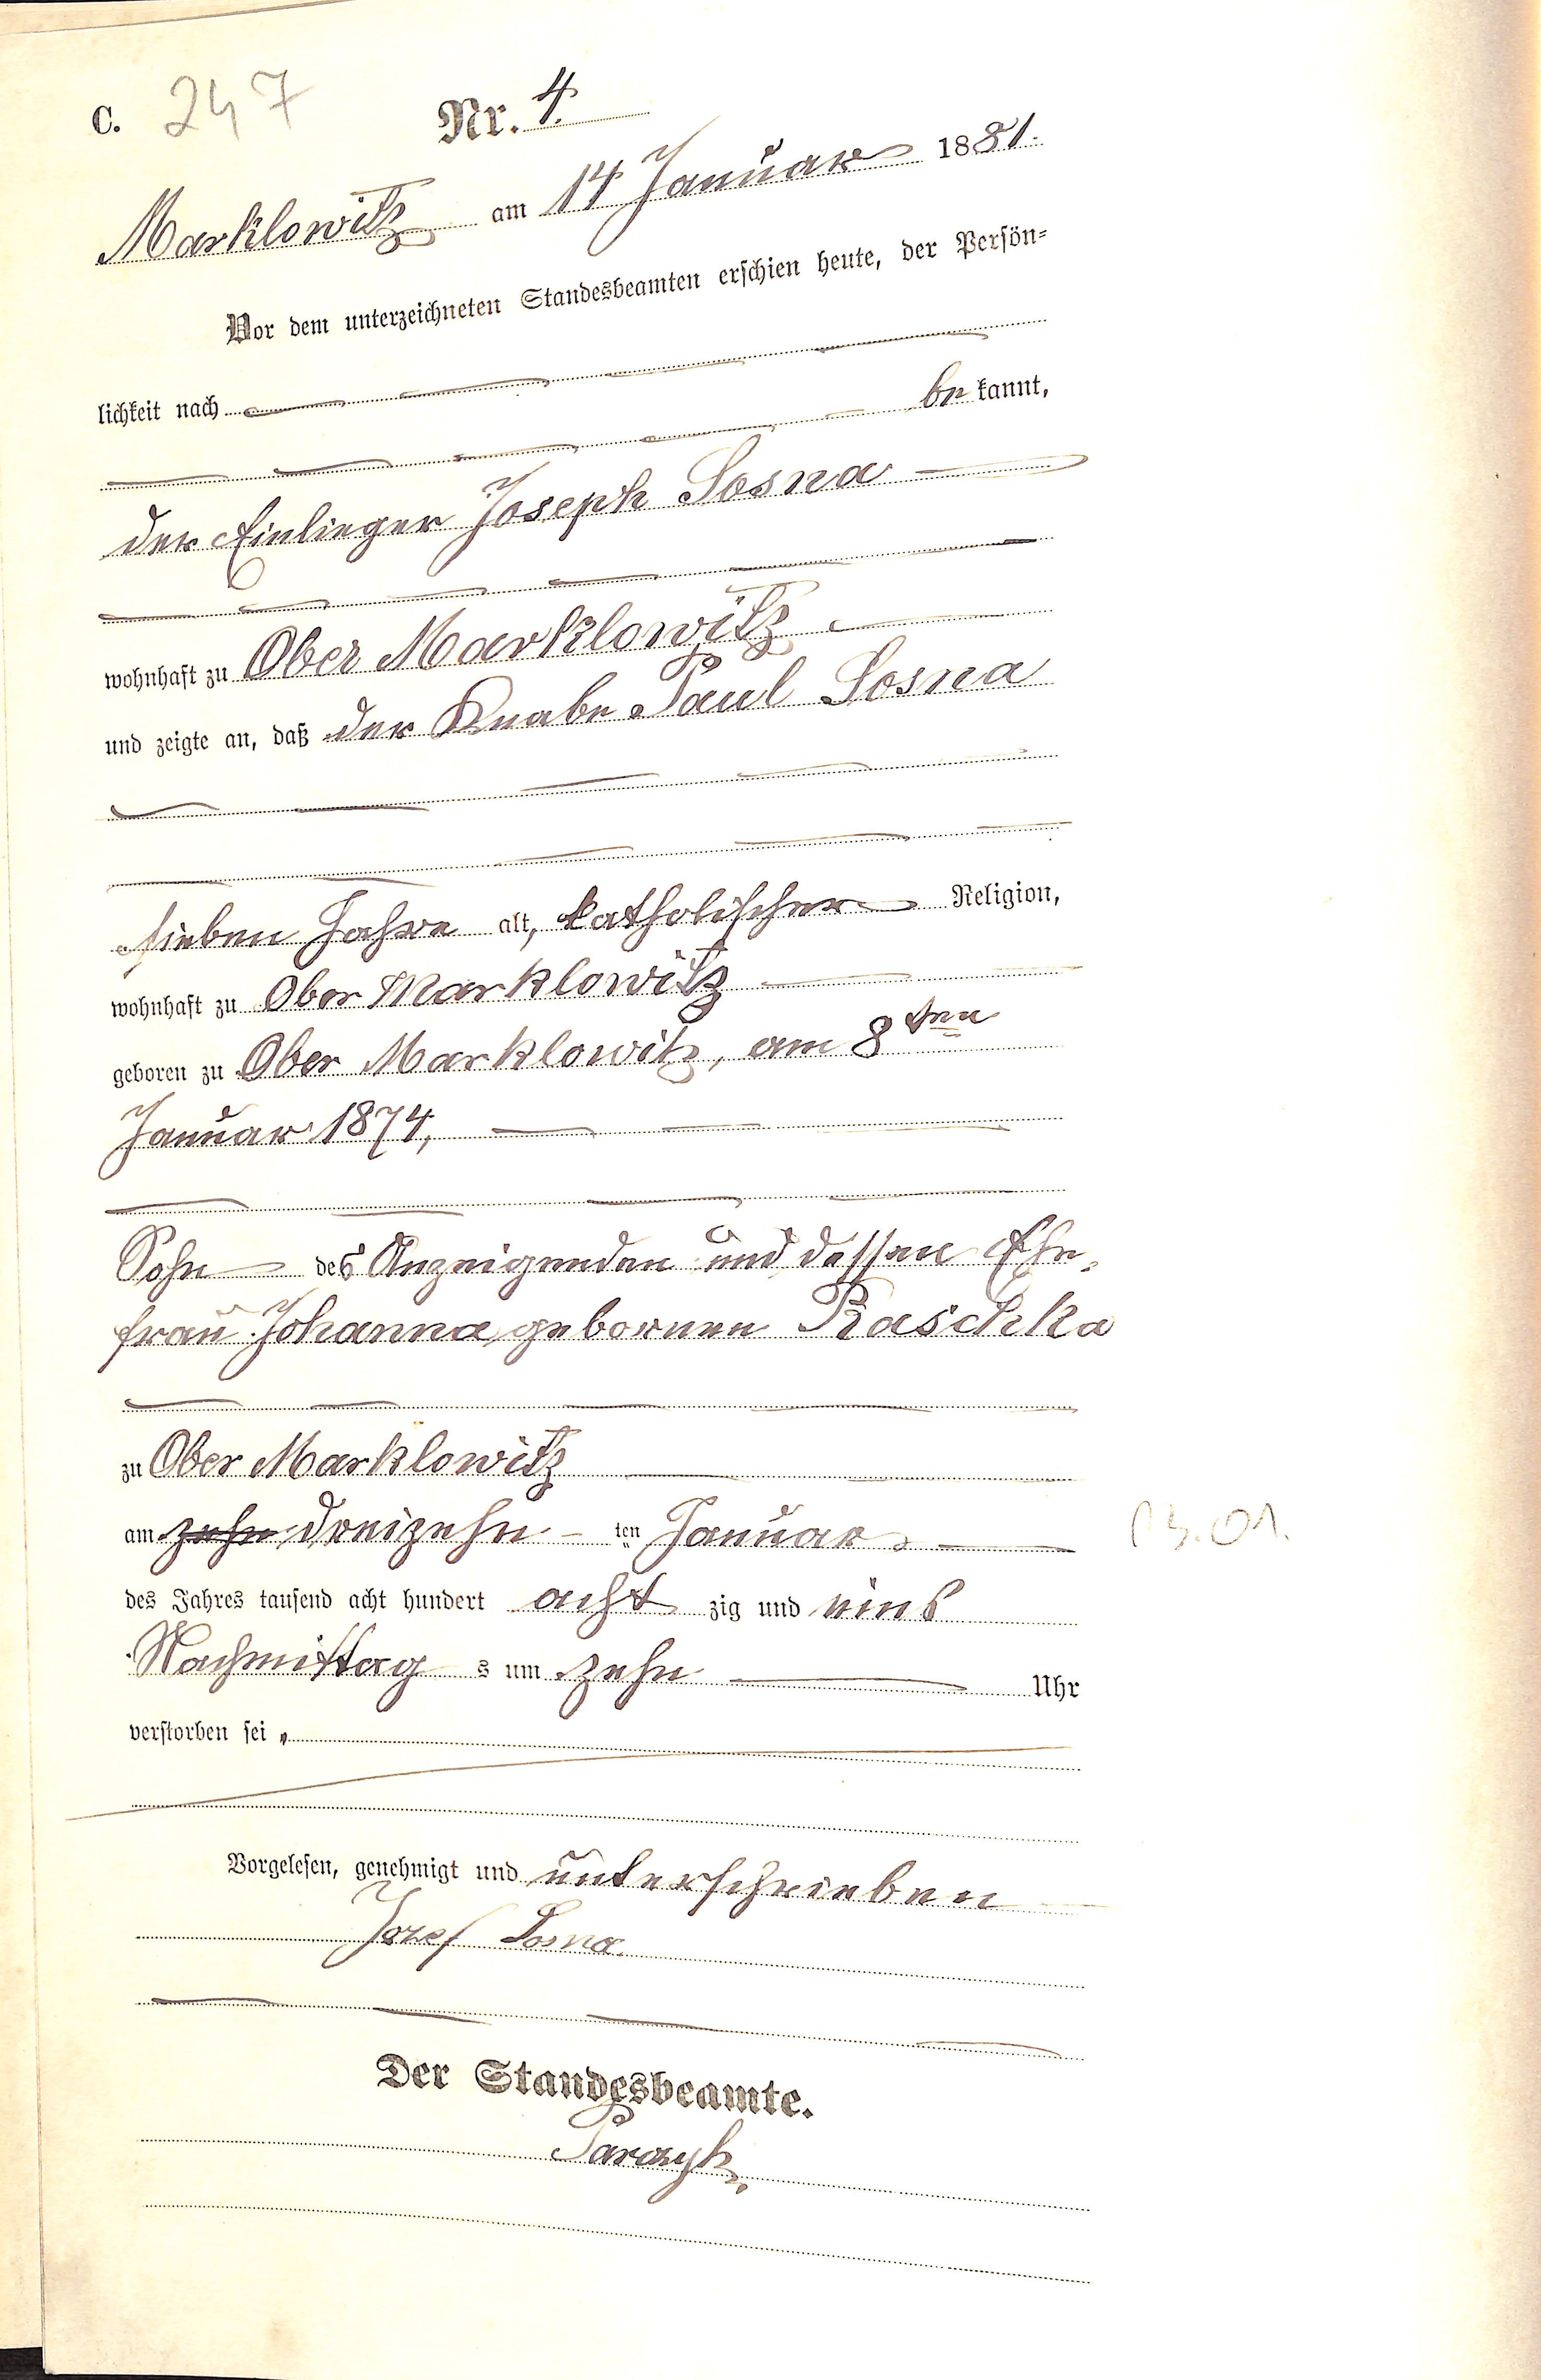 C. 247 Nr. 4.
Marklowitz am 14 Januar 1881.
Vor dem unterzeichneten Standesbeamten erschien heute, der Persön=
lichkeit nach
be kannt,
der Einlieger Joseph Sosna
wohnhaft zu Ober Marklowitz
und zeigte an, daß der Knabe Paul Sosna
sieben Jahre alt, katholischer Religion,
wohnhaft zu Ober Marklowitz
geboren zu Ober Marklowitz, am 8ten
Januar 1874,
Sohn des Anzeigenden und dessen Ehe=
frau Johanna, gebornen Raschka
zu Ober Marklowitz
am zehn dreizehn ten Januar 13.01.
des Jahres tausend acht hundert acht zig und eins
Nachmittag s um zehn Uhr
verstorben sei.
Vorgelesen, genehmigt und unterschrieben
Jozef Sosna.
Der Standesbeamte.